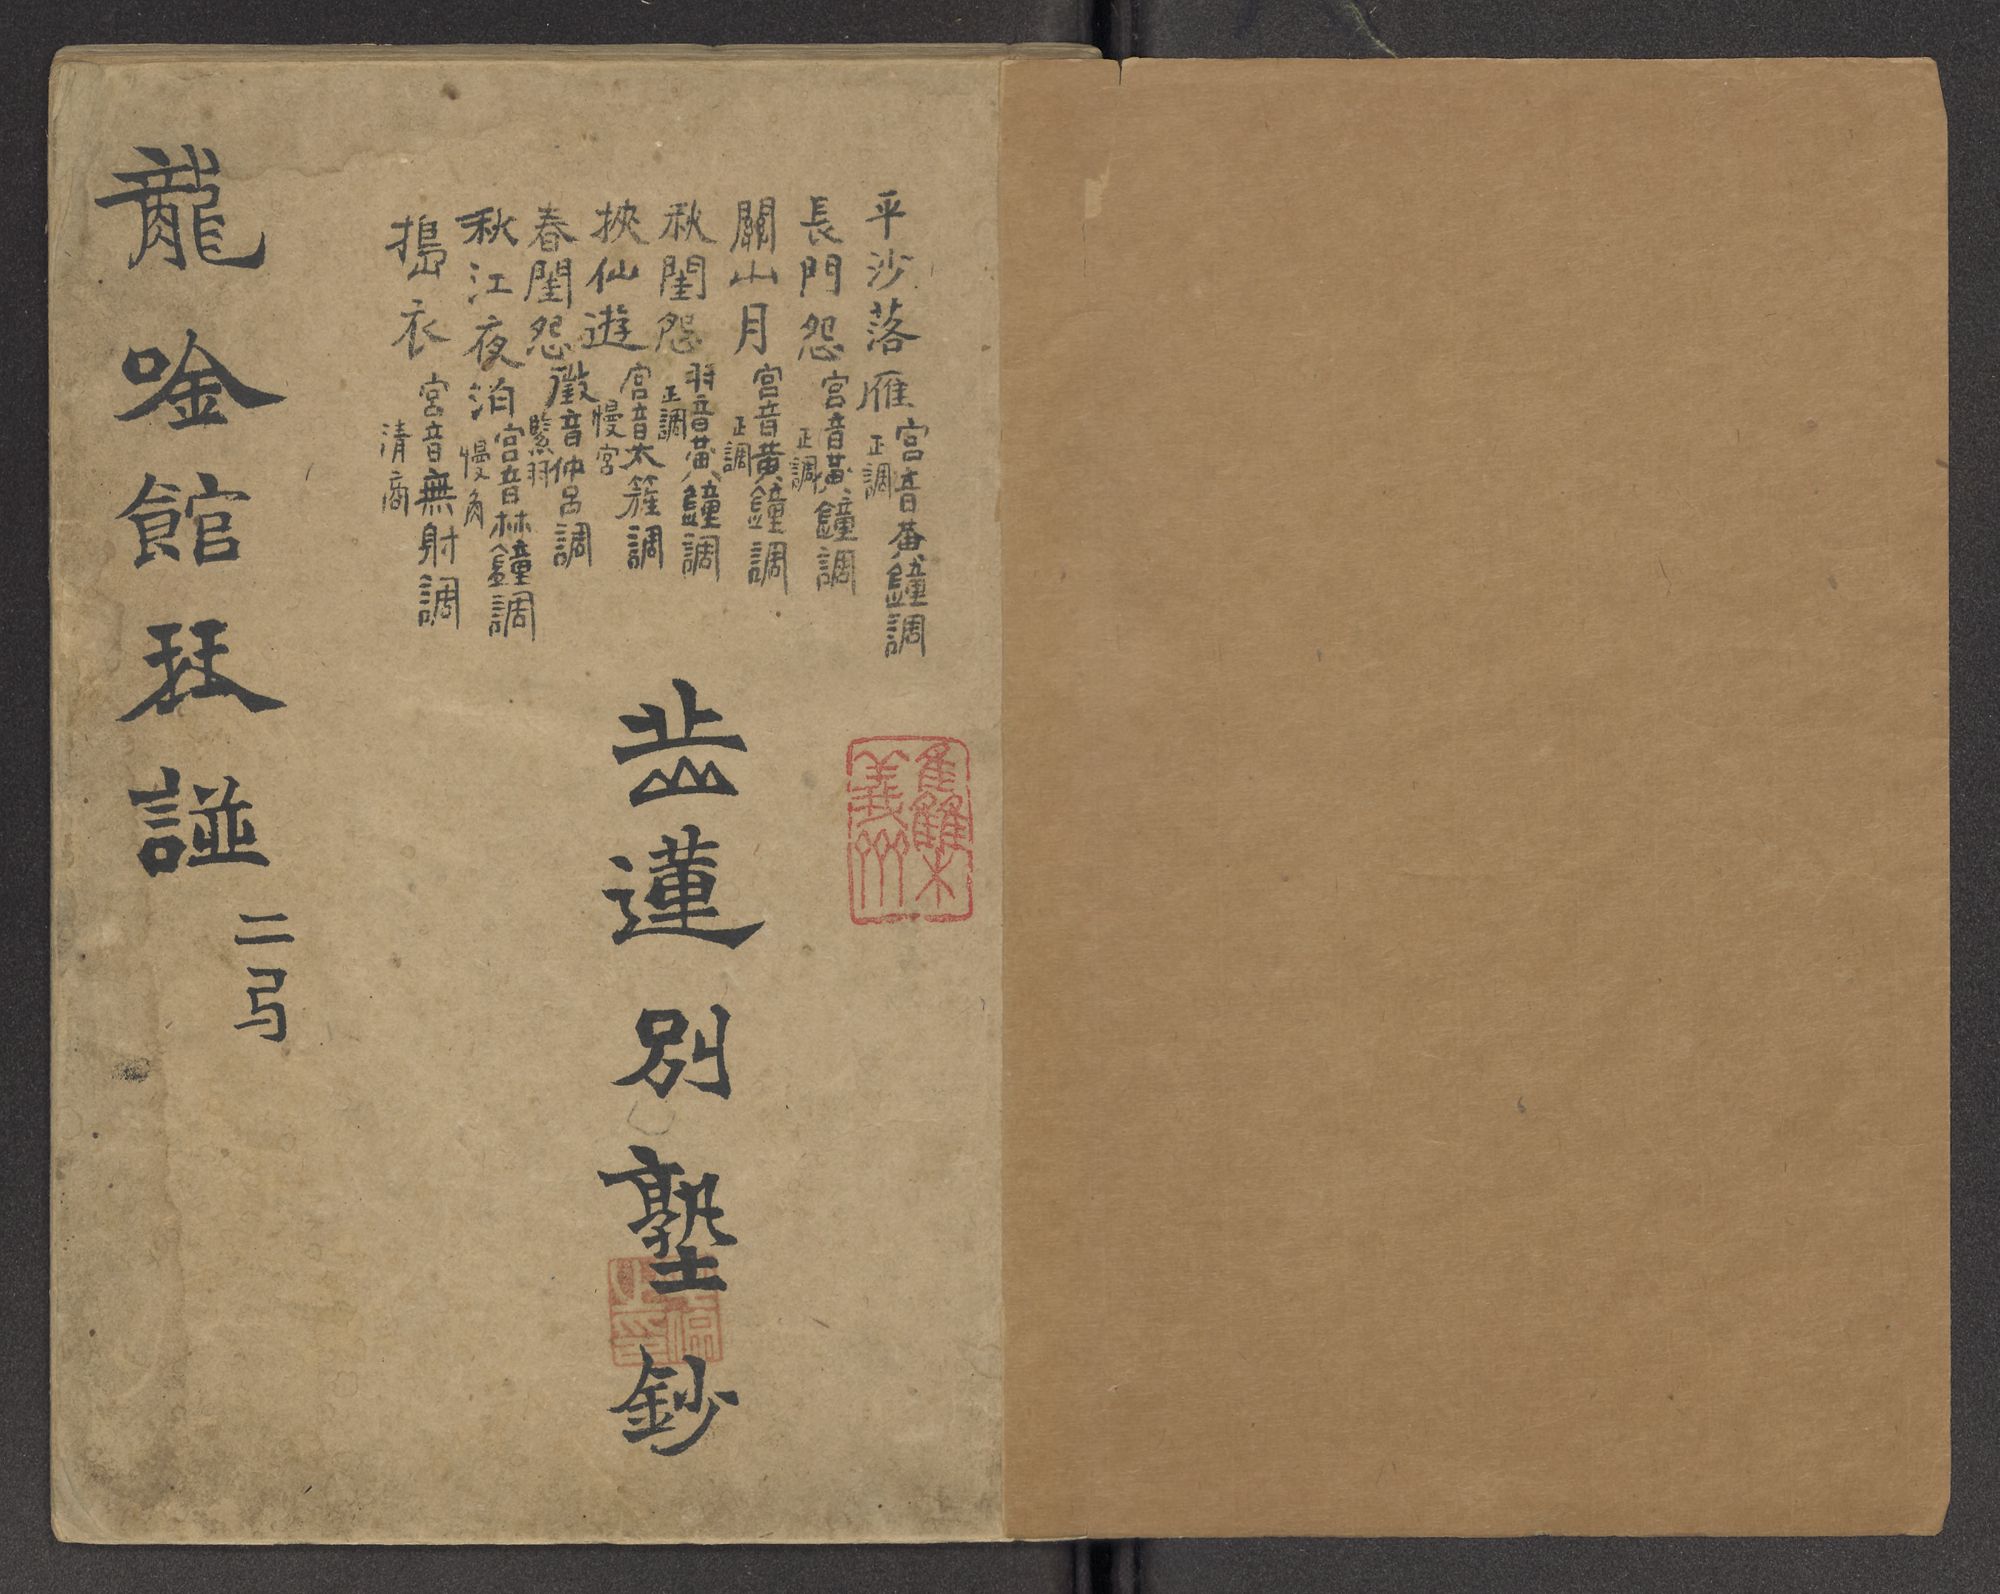 平沙落雁 宮音黃鐘調 正調
長門怨 宮音黃鐘調 正調
關山月 宮音黃鐘調 正調
秋閨怨 羽音黃鐘調 正調
挾仙遊 宮音太簇調 慢宮
春閨怨 徵音仲呂調 緊羽
秋江夜泊 宮音林鐘調 慢角
搗衣 宮音無射調 清商
蓮別塾鈔
龍唫館琹譜 二弓